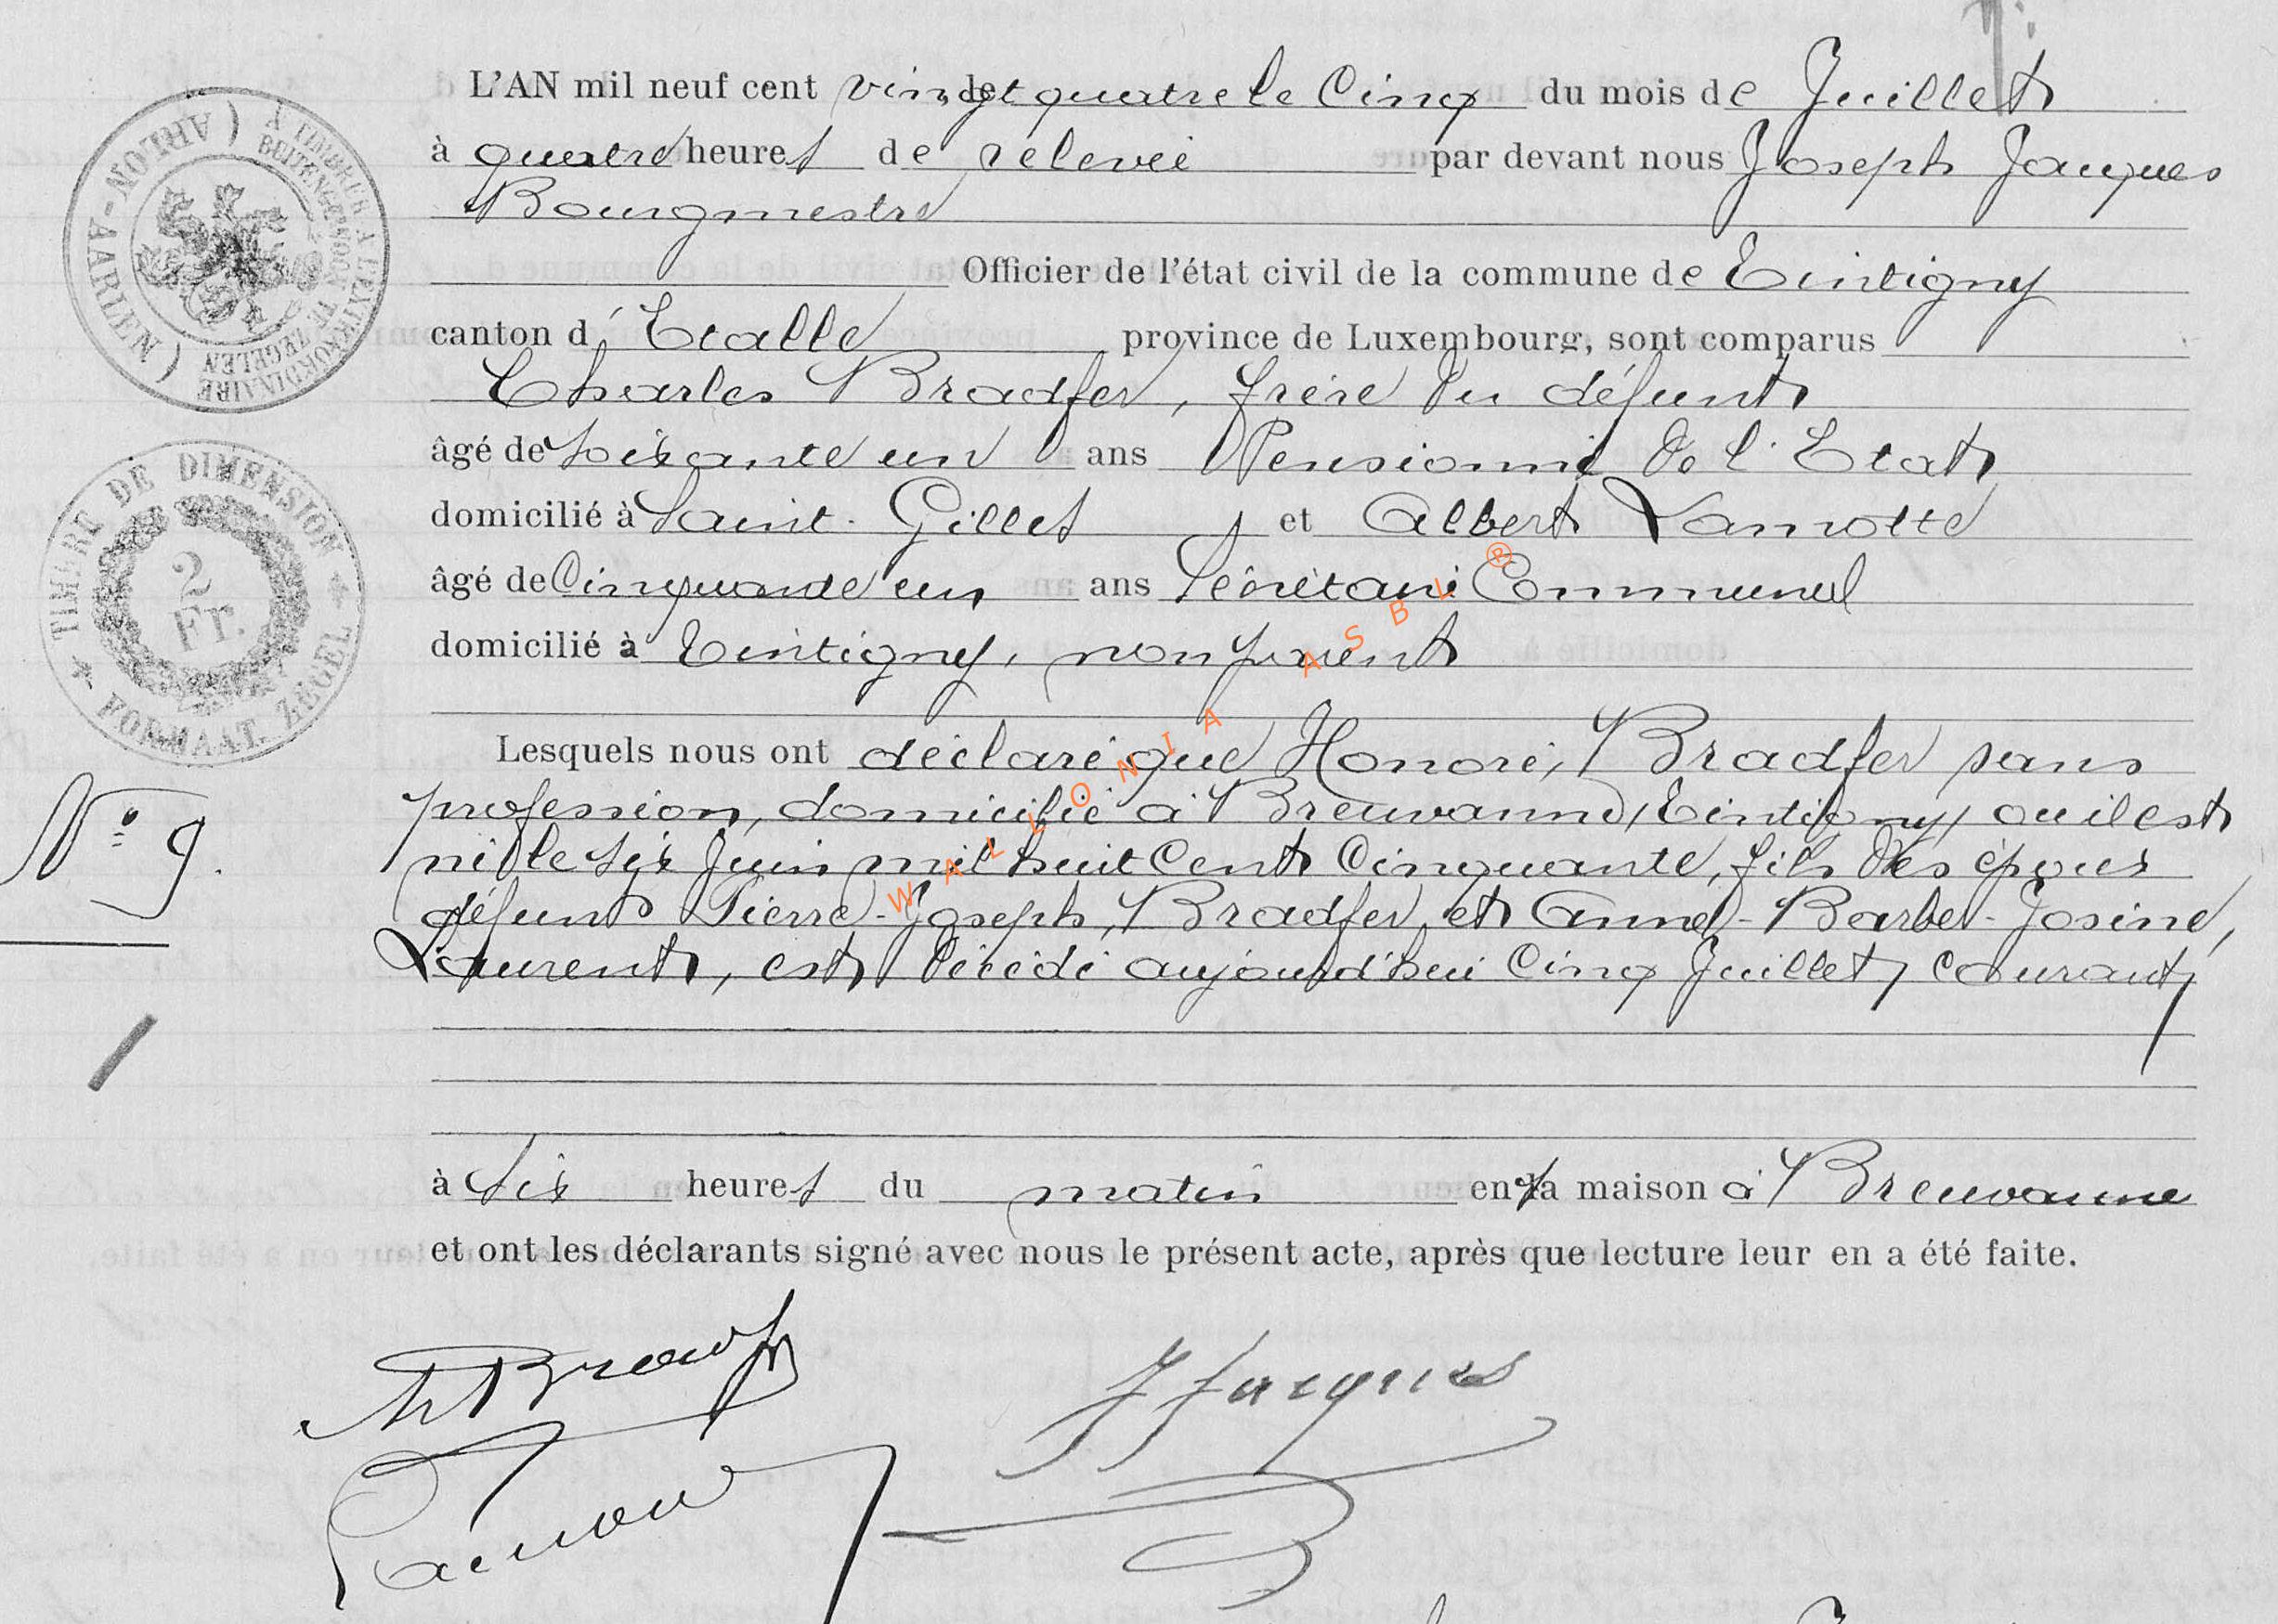 L'AN mil neuf cent vingt quatre le Cinq du mois de Juillet
à quatre heures de relevée par devant nous Joseph Jacques
Bourgmestre
Officier de l'état civil de la commune de Tintigny
canton d'Etalle province de Luxembourg, sont comparus
Charles Bradfer, frère du défunt
âgé de soixante un ans Pensionné de l'Etat
domicilié à Saint-Gilles et Albert Lamotte
âgé de Cinquante un ans Secrétaire Communal
domicilié à Tintigny, non parent
Lesquels nous ont déclaré que Honoré, Bradfer sans
profession, domicilié à Breuvanne, (Tintigny) où il est
né le six Juin mil huit Cent Cinquante, fils des époux
défunts Pierre-Joseph, Bradfer et Anne-Barbe-Josine,
Laurent, est décédé aujourd'hui Cinq Juillet courant,
à six heures du matin en sa maison à Breuvanne
et ont les déclarants signé avec nous le présent acte, après que lecture leur en a été faite.
N° 9.
Bradfer
J Jacques
Lamotte
(ARLON-AARLEN)
A TIMBRER A L'EXTRAORDINAIRE
BUITENGEWOON TE ZEGELEN
TIMBRE DE DIMENSION
2
Fr.
* FORMAAT ZEGEL *
WALLONIA ASBL ®